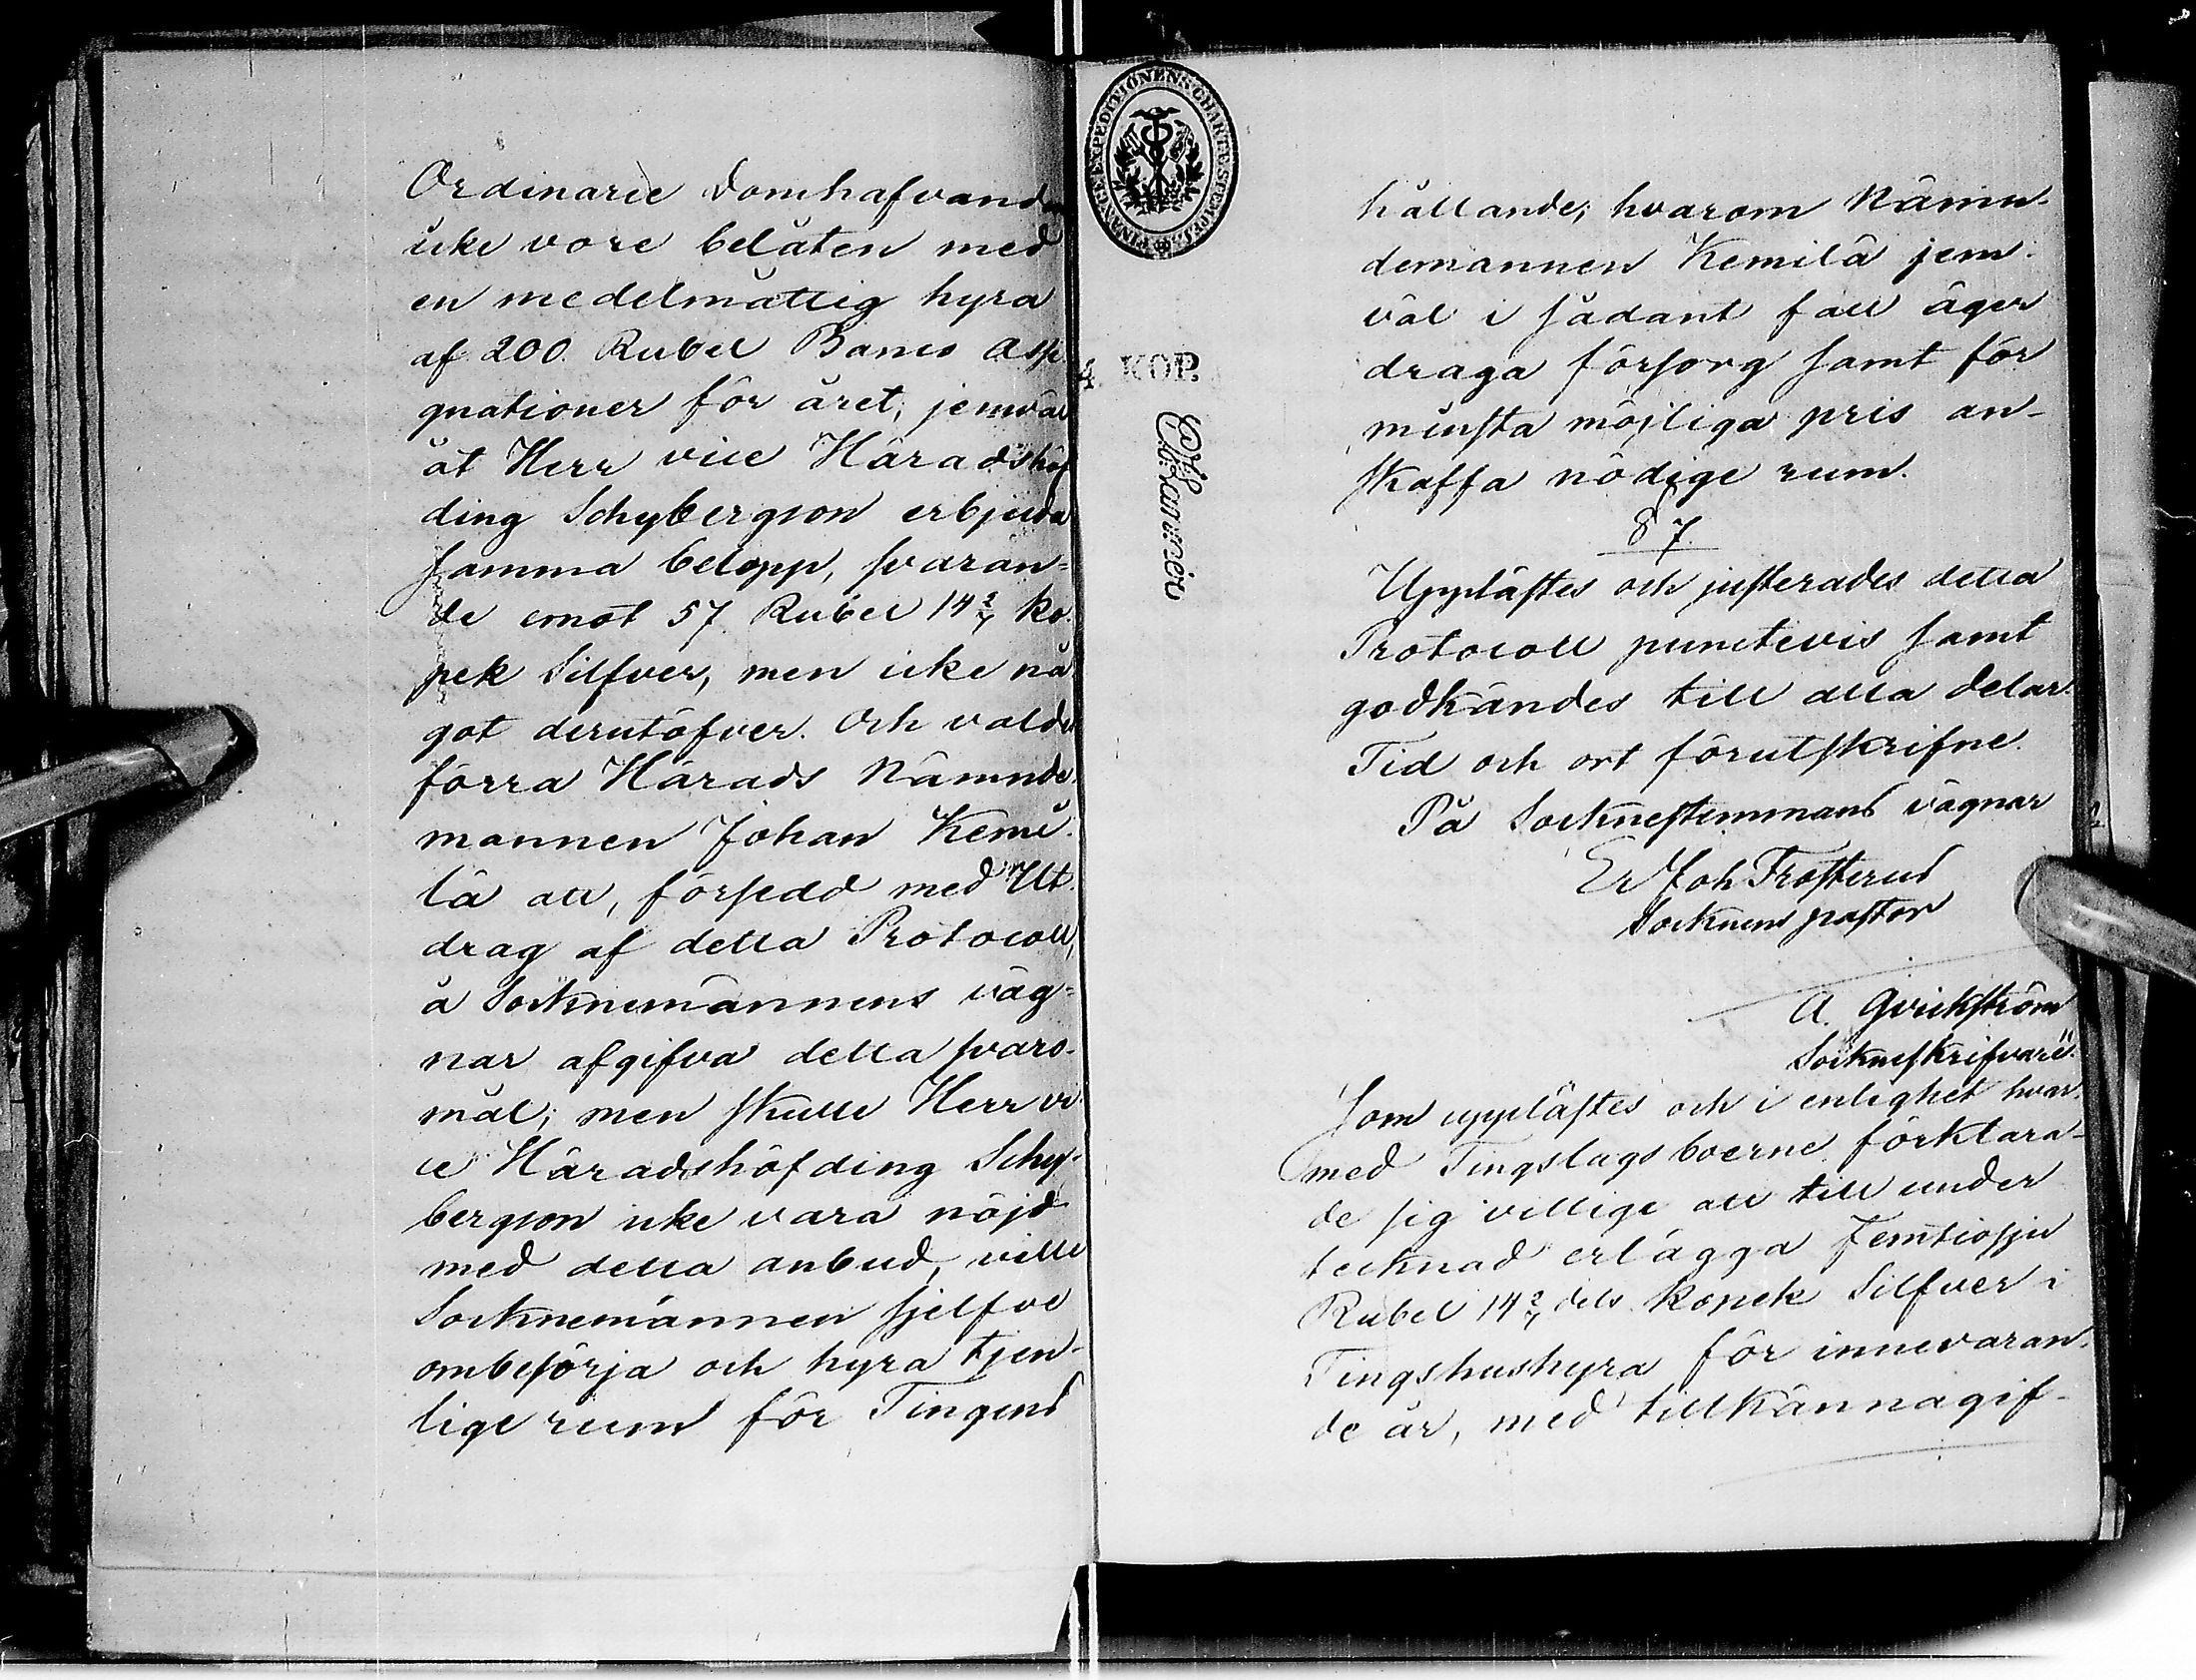 Ordinarie Domhafvanden
icke vore belåten med
en medelmåttig hyra
af 200. Rubel Banco Assi
gnationer för året, jemväl
åt Herr vice Häradshöf
ding Schybergson erbjuda
samma belopp, svaran=
de emot 57. Rubel 14 2/7 ko.
pek Silfver, men icke nå
got derutöfver. Och valdes
förra Härads Nämnde
mannen Johan Kemi.
lä att, försedd med Ut.
drag af detta Protocoll,
å Socknemännens väg=
nar afgifva detta svaro-
mål; men skulle Herr vi
ce Häradshöfding Schy-
bergson icke vara nöjd
med detta anbud, ville
Socknemännen sjelfve
ombesörja och hyra tjen-
lige rum för Tingens
FINANCE EXPEDITIONENS CHARTÆ STEMPEL
4 KOP.
hållande; hvarom Nämn-
demannen Kemilä jem-
väl i sådant fall äger
draga försorg samt för
minsta möjliga pris an-
skaffa nödige rum.
§ 7.
Upplästes och justerades detta
Protocoll punctevis samt
godkändes till alla delar.
Tid och ort förutskrifne.
På Socknestemmans vägnar
Er Joh Frosterus
Socknens pastor
A. Qvickström
Sockneskrifvare.
Som upplästes och i enlighet hvar.
med Tingslagsboerne förklara-
de sig villige att till under
tecknad erlägga Femtiosju
Rubel 14 2/7 dels kopek Silfver i
Tingshushyra för innevaran.
de år, med tillkännagif-